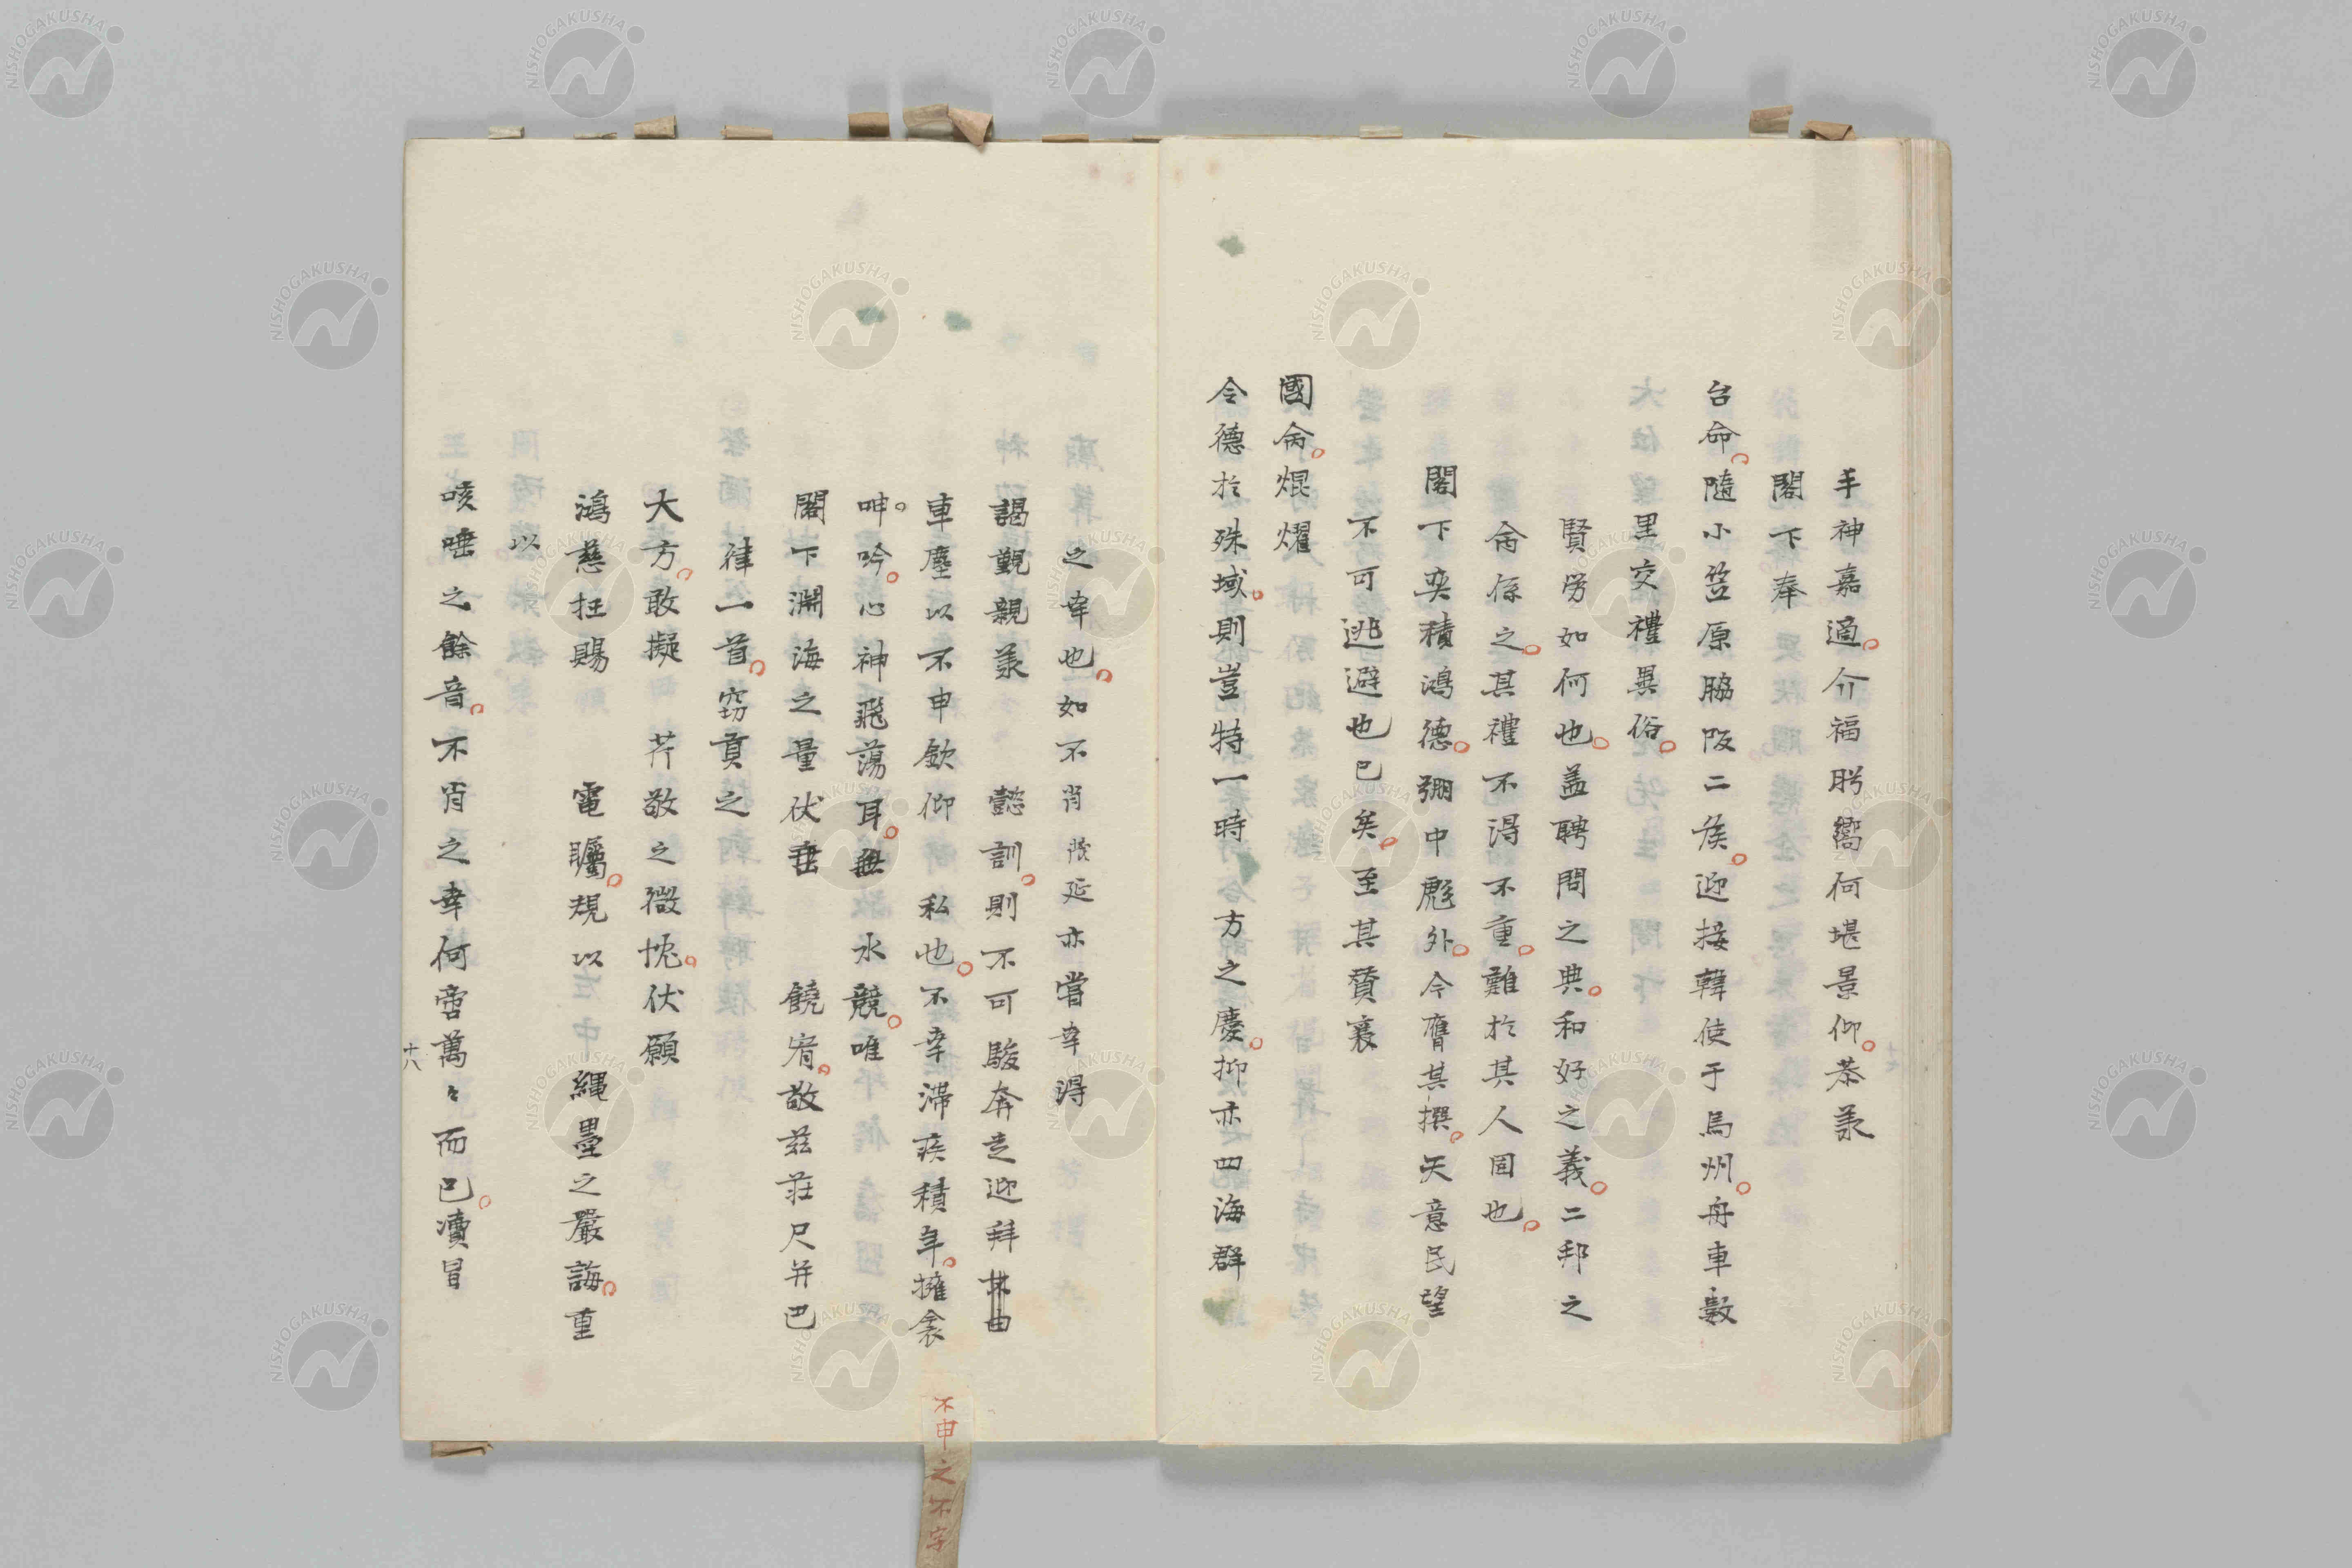 手神嘉適介福肹嚮何堪景仰恭羕
閣下奉
台命隨小笠原脇阪二矦迎接韓使于馬州舟車數
里交禮異俗
賢勞如何也盖聘問之典和好之義二邦之
命係之其禮不淂不重難於其人固也
閣下奕積鴻德弸中彪外今膺其撰天意民望
不可逃避也已矣至其贊襄
國命焜燿
令德於殊域則豈特一時一方之慶抑亦四海群
之幸也如不肖茂延亦嘗幸淂
謁覲親羕 懿訓則不可駿奔走迎拜
車塵以不申欽仰 私也不幸滯疾積年擁衾
呻吟心神飛蕩耳無 水競唯
閣下淵海之量伏垂 饒宥敬兹莊尺并巴
律一首窃貢之
大方敢擬 芹敬之微忱伏願
鴻慈抂賜 電矚規以 繩墨之嚴誨重
以
咳唾之餘音不肖之幸何啻萬々而已瀆冒
十八
不申之不字
NISHOGAKUSHA